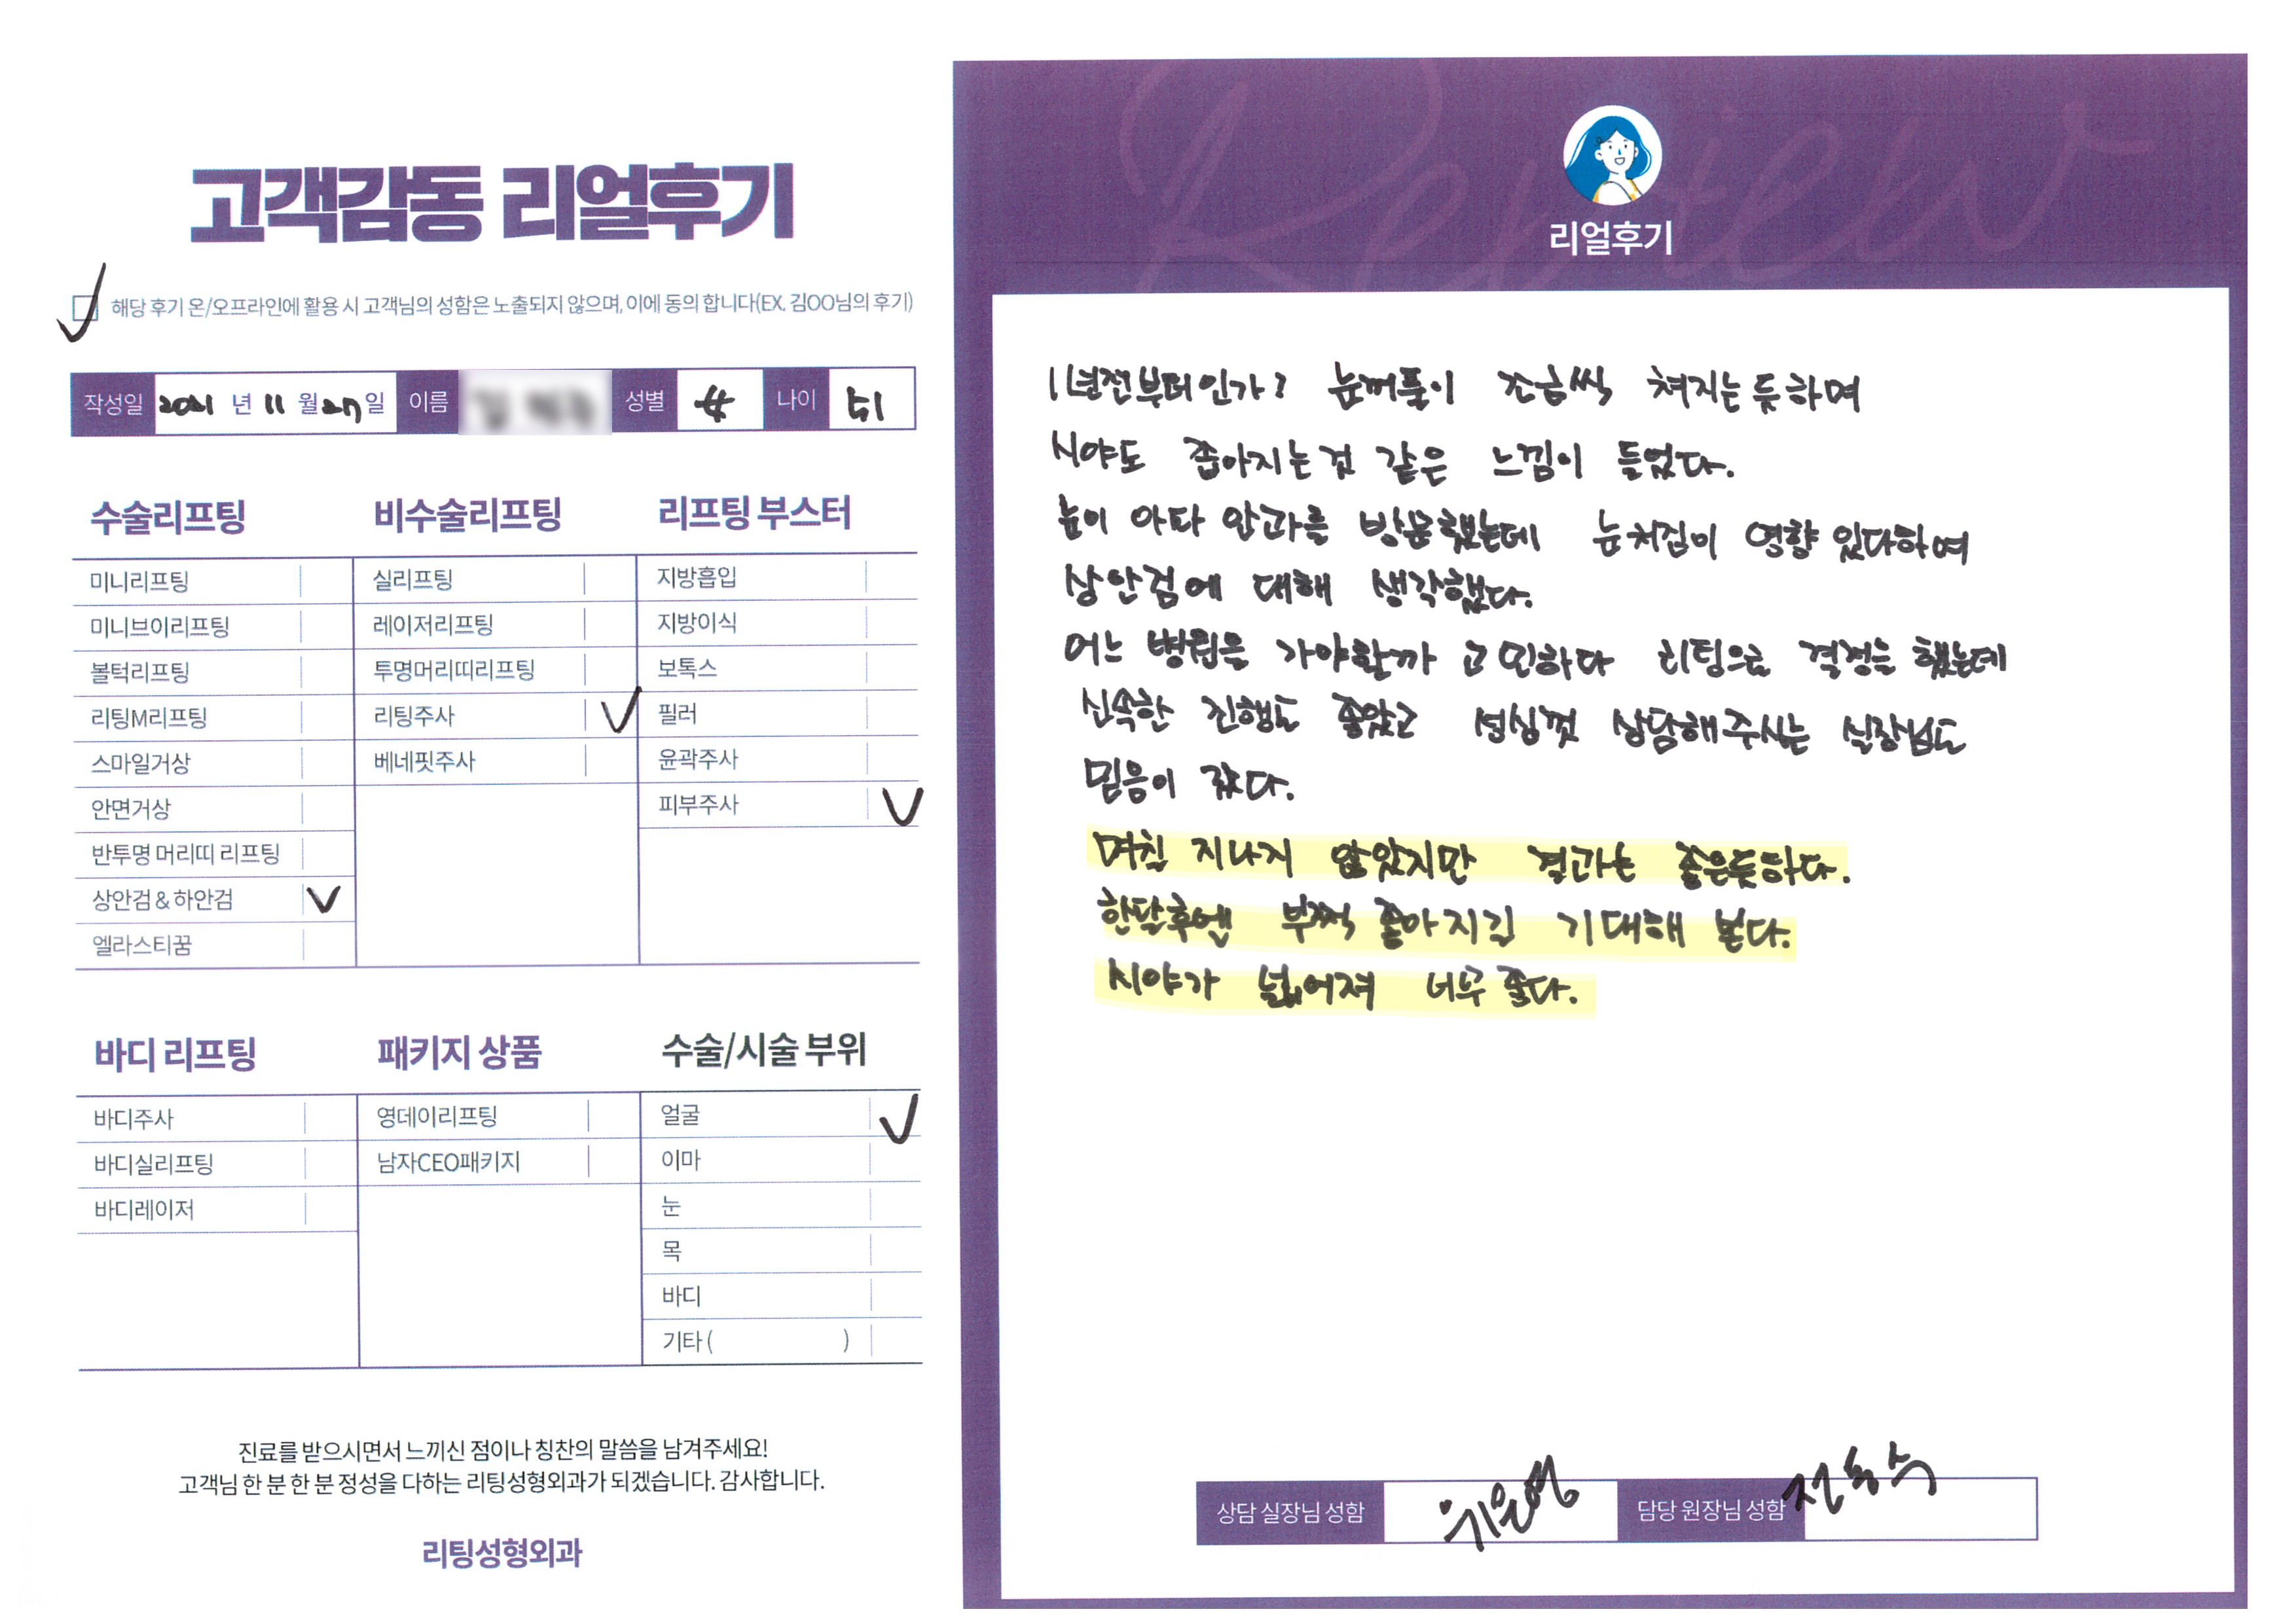 고객감동 리얼후기
해당 후기 온/오프라인에 활용 시 고객님의 성함은 노출되지 않으며, 이에 동의 합니다(EX. 김OO님의 후기)
작성일 2021 년 11 월 27 일 이름 성별 女 나이 51
수술리프팅
미니리프팅
미니브이리프팅
볼턱리프팅
리팅M리프팅
스마일거상
안면거상
반투명 머리띠 리프팅
상안검 & 하안검 ✓
엘라스티꿈
비수술리프팅
실리프팅
레이저리프팅
투명머리띠리프팅
리팅주사 ✓
베네핏주사
리프팅 부스터
지방흡입
지방이식
보톡스
필러
윤곽주사
피부주사 ✓
바디 리프팅
바디주사
바디실리프팅
바디레이저
패키지 상품
영데이리프팅
남자CEO패키지
수술/시술 부위
얼굴 ✓
이마
눈
목
바디
기타 ( )
진료를 받으시면서 느끼신 점이나 칭찬의 말씀을 남겨주세요!
고객님 한 분 한 분 정성을 다하는 리팅성형외과가 되겠습니다. 감사합니다.
리팅성형외과
Review
리얼후기
1년전부터인가? 눈꺼풀이 조금씩 쳐지는 듯하며
시야도 좁아지는것 같은 느낌이 들었다.
눈이 아파 안과를 방문했는데 눈처짐이 영향 있다하여
상안검에 대해 생각했다.
어느 병원을 가야할까 고민하다 리팅으로 결정을 했는데
신속한 진행도 좋았고 성심껏 상담해주시는 실장님도
믿음이 갔다.
며칠 지나지 않았지만 결과는 좋은듯하다.
한달후엔 부쩍 좋아지길 기대해 본다.
시야가 넓어져 너무 좋다.
상담 실장님 성함 위은영 담당 원장님 성함 전동수